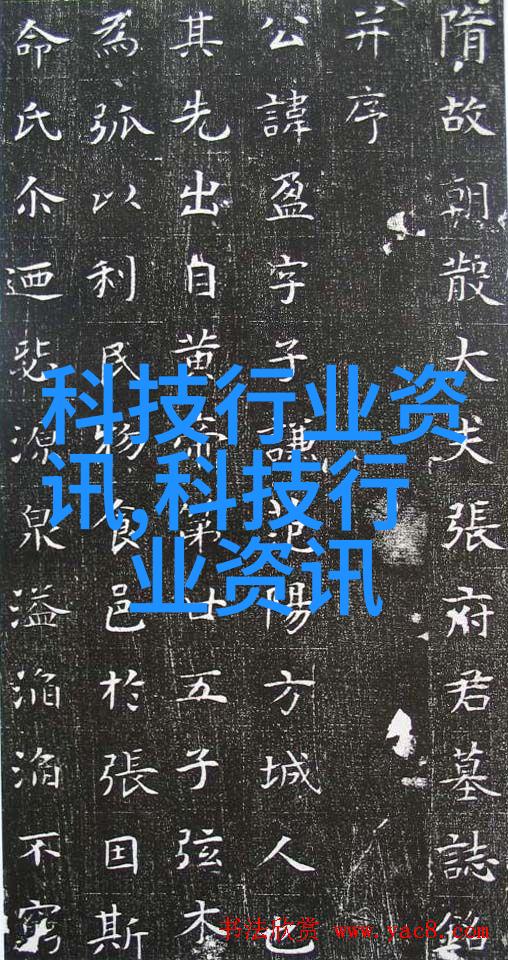 隋故朝散大夫張府君墓誌銘
并序
公諱盈字子謙范陽方城人也
其先出自黄帝第廿五子弦木
為弧以利民物食邑於張因斯
命氏尒迺源泉溢滔滔不窮
科技行业资
讯,科技行
业资讯
书法欣赏 www.yac8.com